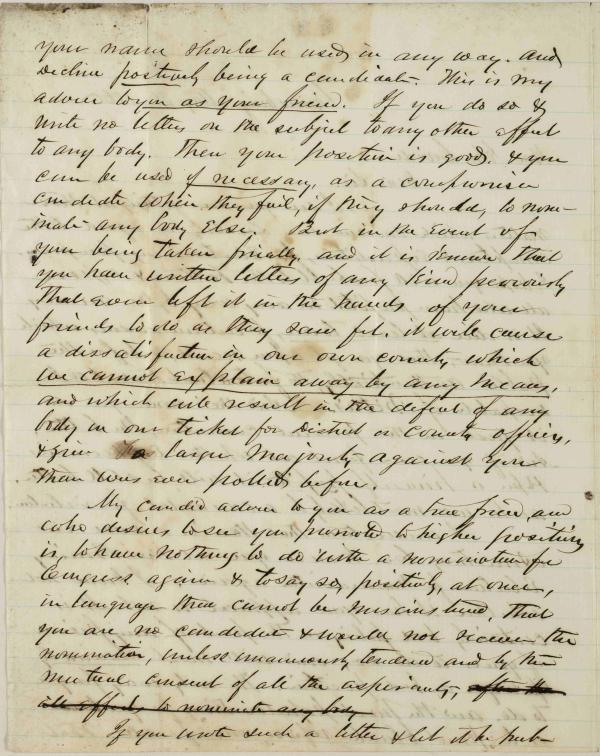 your name should be used in any way. And
decline positively being a candidate. This is my
advice to you as your friend. If you do so &
write no letters on the subject to any other effect
to any body. Then your position is good, & you
can be used if necessary, as a compromise
candidate when they fail, if they should, to nom-
inate any body else. But in the event of
you being taken finally, and it is known that
you have written letters of any kind previously
that even left it in the hands of your
friends to do as they saw fit. it will cause
a dissatisfaction in our own county which
we cannot explain away by any means,
and which will result in the defeat of any
body in our ticket for District or county officers,
& give a larger majority against you
than was ever polled before.
My candid advice to you as a true friend, and
who desires to see you promoted to higher positions
is, to have nothing to do with a nomination for
Congress again & to say so, positively, at once,
in language that cannot be misconstrued, that
you are no candidate & would not receive the
nomination, unless unanimously tendered and by the
mutual consent of all the aspirants, after the
all efforts to nominate any body
If you wrote such a letter & let it be pub-